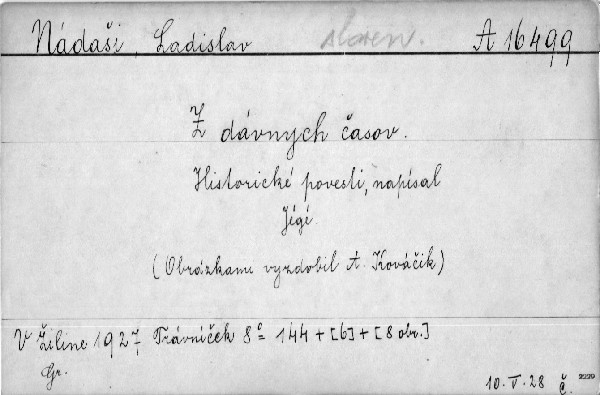 Nádaši, Ladislav sloven. A 16499
Z dávnych časov.
Historické povesti, napísal
Jégé.
(Obrázkami vyzdobil A. Kováčik)
V Žiline 1927, Trávníček 8° 144 + [6] + [8 obr.]
Gr.
10.V.28 Č.